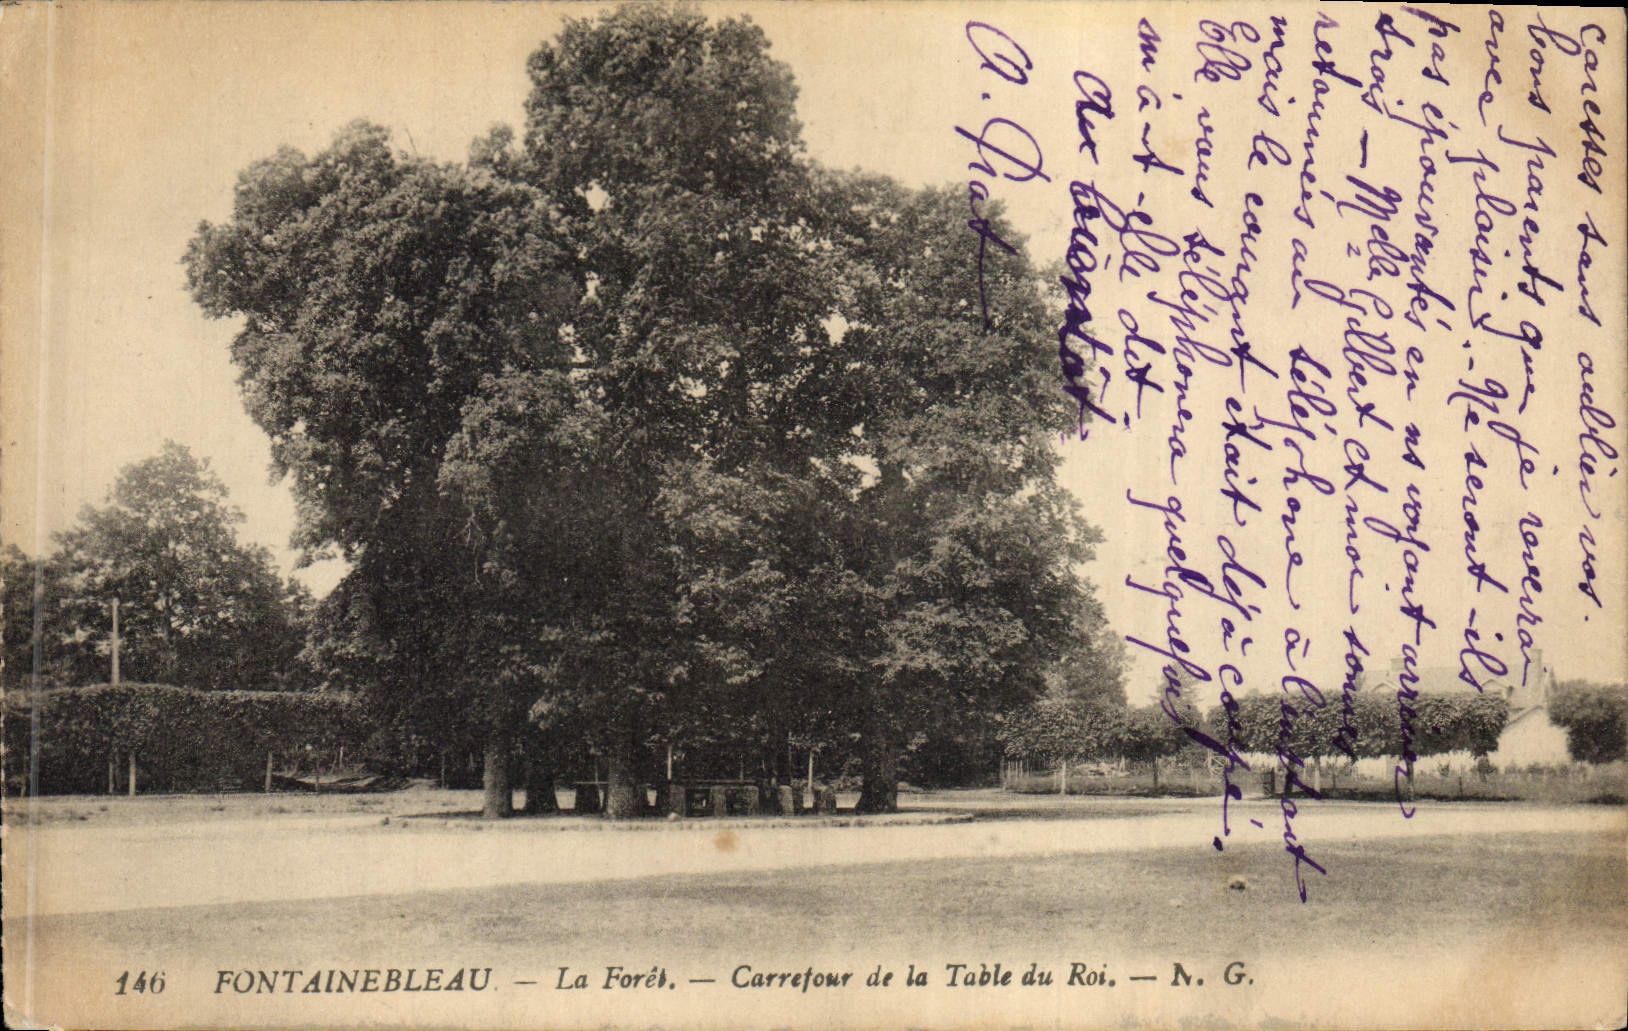 Caresses sans oublier vos
bons parents que je reverrai
avec plaisir. - Ne seront-ils
pas épouvantés en ns voyant arriver
trois — Melle Gilbert et moi sommes
retournées au téléphone à l'instant
mais le courant était déjà coupé.
Elle vous téléphonera quelquefois
m'a-t-elle dit.
Au bientôt
A. Prat
146 FONTAINEBLEAU. — La Forêt. — Carrefour de la Table du Roi. — N. G.